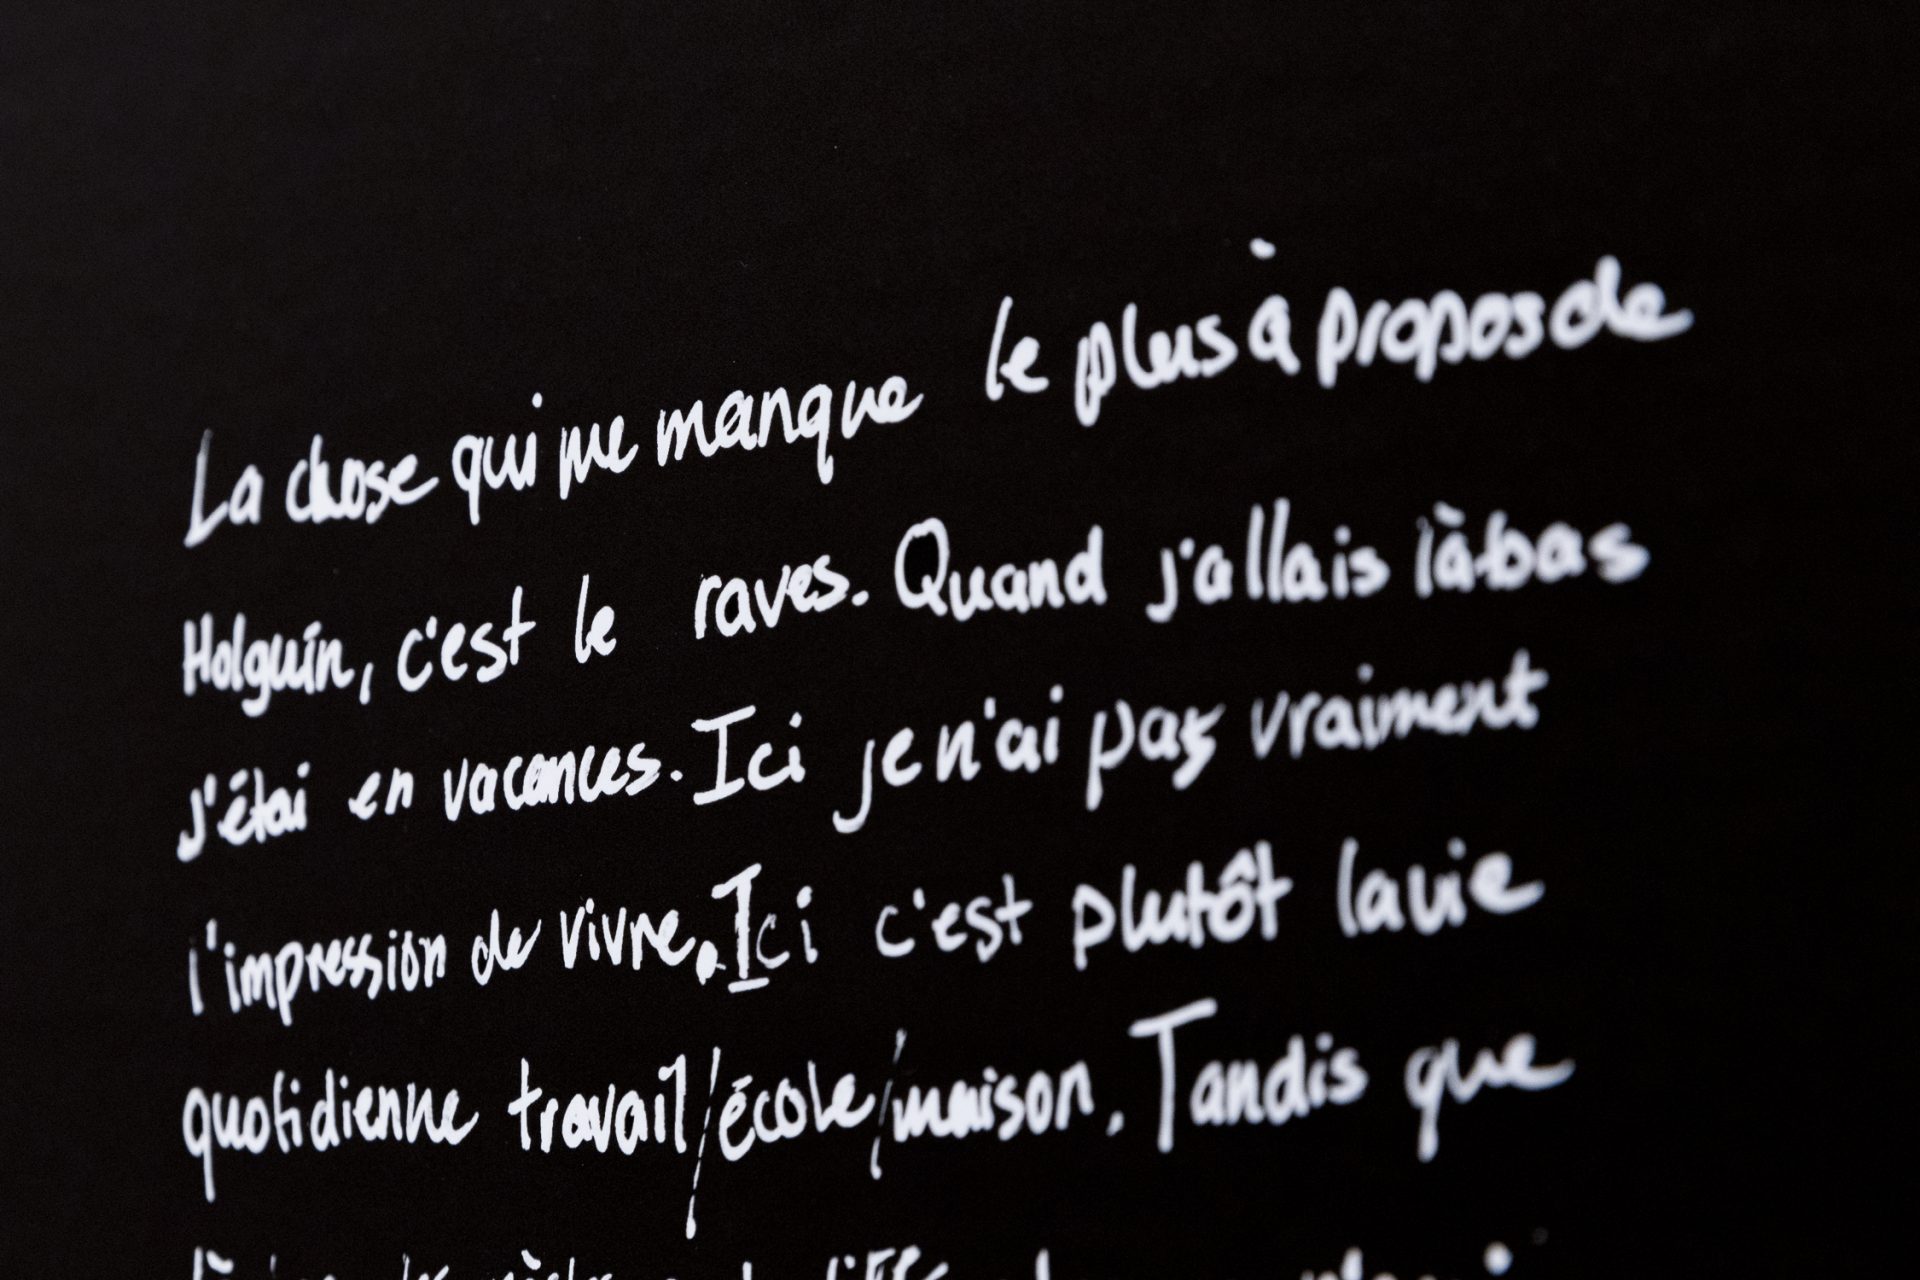 La chose qui me manque le plus à propos de
Holguín, c'est le raves. Quand j'allais là-bas
j'étai en vacances. Ici je n'ai pas vraiment
l'impression de vivre. Ici c'est plutôt la vie
quotidienne travail/école/maison. Tandis que